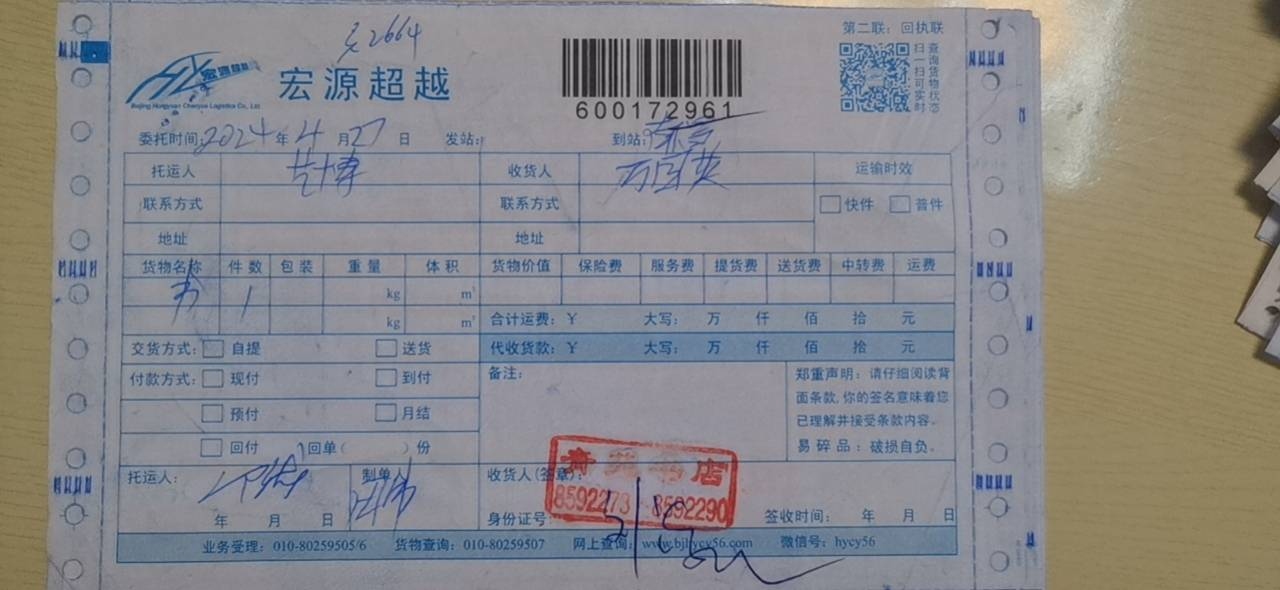 第二联：回执联
2664
宏源超越
Beijing Hongyuan Chaoyue Logistics Co., Ltd
宏源超越
600172961
扫一扫可实时
查询货物状态
委托时间：2024年4月27日 发站： 到站：
托运人 收货人 万国英 运输时效
联系方式 联系方式 快件 普件
地址 地址
货物名称 件数 包装 重量 体积 货物价值 保险费 服务费 提货费 送货费 中转费 运费
书 1 kg m³
kg m³ 合计运费：¥ 大写： 万 仟 佰 拾 元
交货方式： 自提 送货 代收货款：¥ 大写： 万 仟 佰 拾 元
付款方式： 现付 到付 备注：
预付 月结
回付 回单( )份
郑重声明：请仔细阅读背
面条款,你的签名意味着您
已理解并接受条款内容。
易碎品：破损自负。
托运人： 制单 收货人(签章)：
书店
8592273 8592290
年 月 日 身份证号 签收时间： 年 月 日
业务受理：010-80259505/6 货物查询：010-80259507 网上查询：www.bjhycy56.com 微信号：hycy56